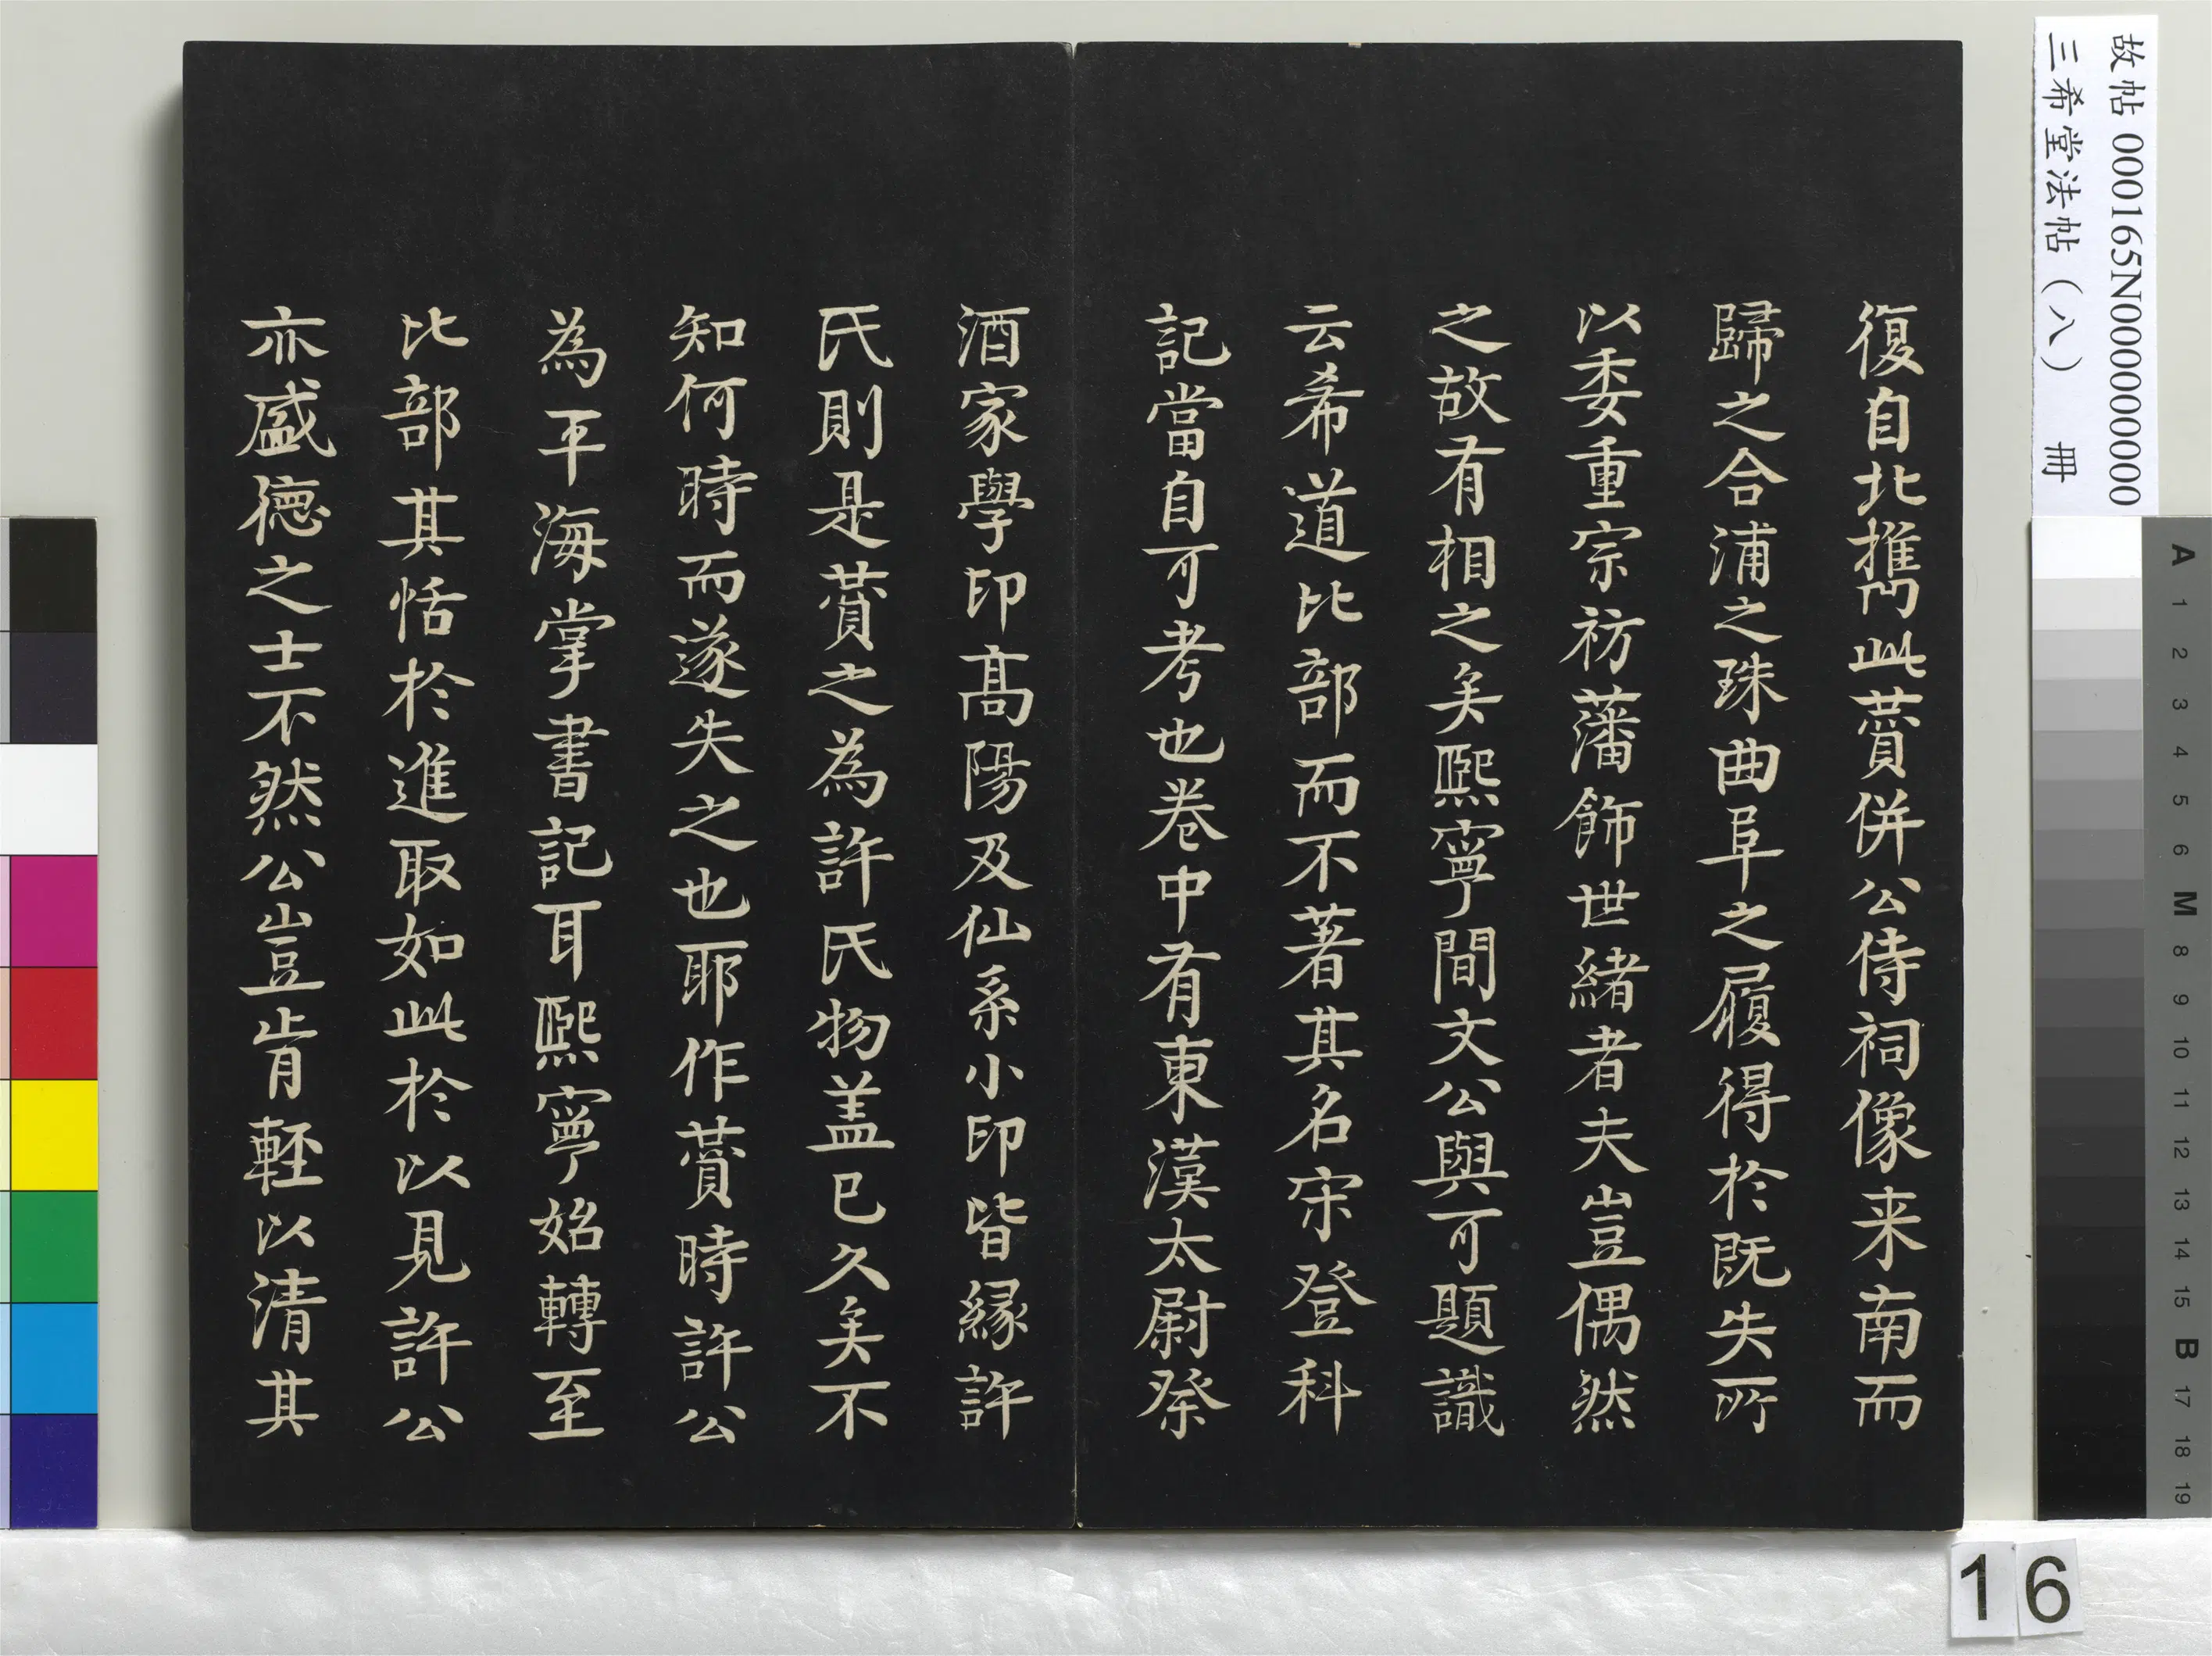 復自北攜此賛併公侍祠像来南而
歸之合浦之珠曲阜之履得於既失所
以委重宗祊藩飾世緒者夫豈偶然
之故有相之矣熙寧間文公與可題識
云希道比部而不著其名宋登科
記當自可考也卷中有東漢太尉祭
酒家學印髙陽及仙系小印皆縁許
氏則是賛之為許氏物盖已久矣不
知何時而遂失之也耶作賛時許公
為平海掌書記耳熙寧始轉至
比部其恬於進取如此於以見許公
亦盛徳之士不然公豈肯軽以清其
故帖 000165N000000000
三希堂法帖(八) 冊
A 1 2 3 4 5 6 M 8 9 10 11 12 13 14 15 B 17 18 19
16